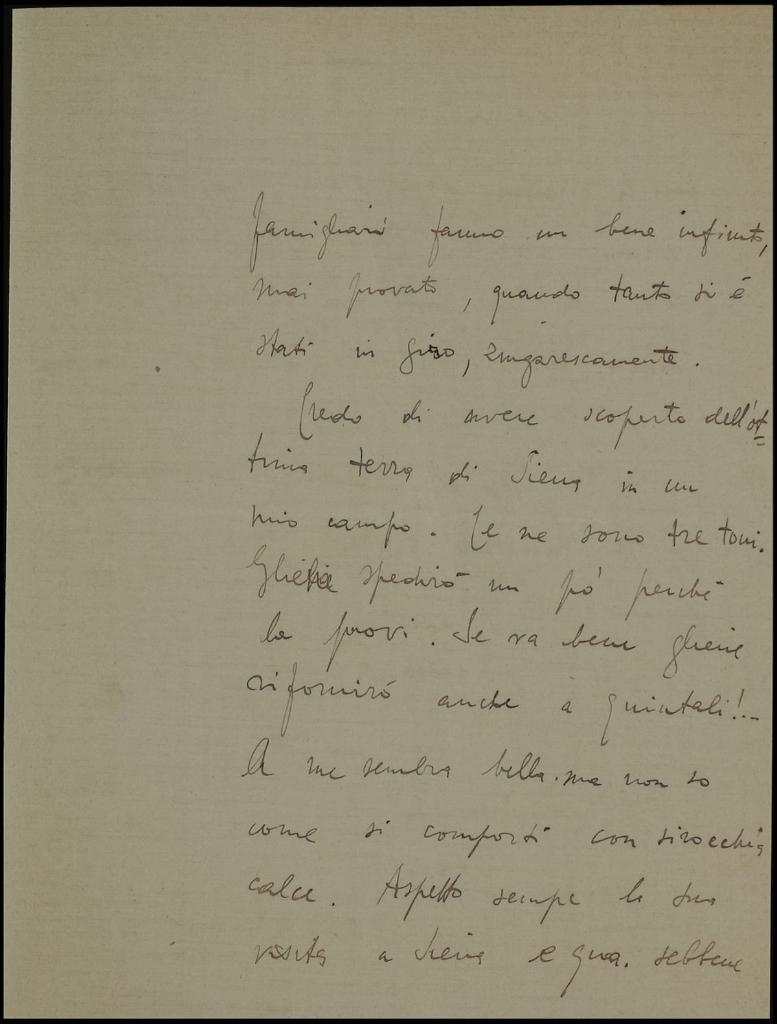 famigliari fanno un bene infinito,
mai provato, quando tanto si è
stati in giro, zingarescamente.
Credo di avere scoperto dell'ot=
tima terra di Siena in un
mio campo. Ce ne sono tre toni.
Gliene spedirò un pó perchè
la provi. Se va bene gliene
rifornirò anche a quintali!..
A me sembra bella. ma non so
come si comporti con sirocchia
calce. Aspetto sempre la sua
visita a Siena e qua. sebbene